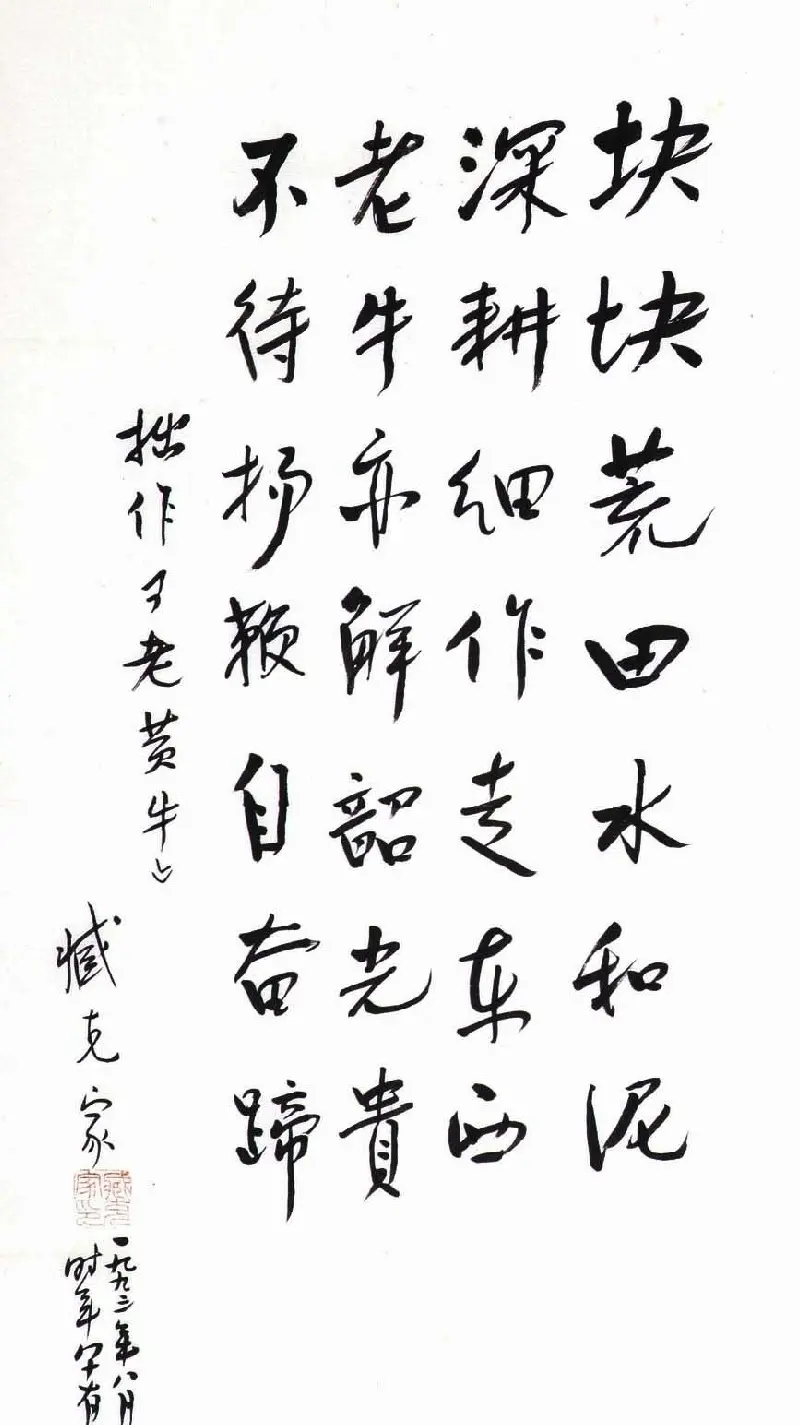 块块荒田水和泥
深耕细作走东西
老牛亦解韶光貴
不待扬鞭自奋蹄
拙作《老黄牛》
臧克家
臧克家印
一九九三年八月
时年八十有